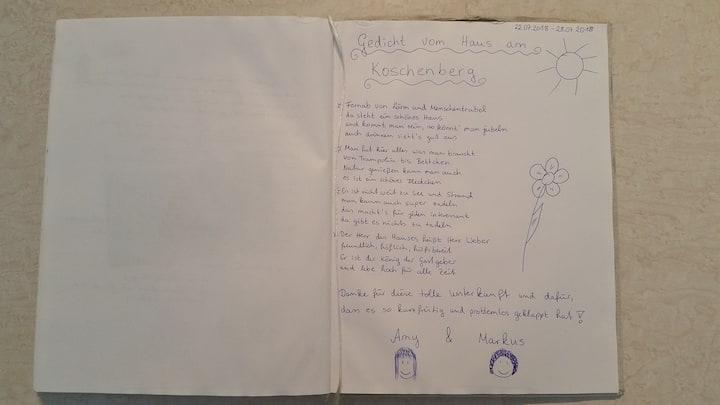 22.07.2018 - 28.07.2018
Gedicht vom Haus am
Koschenberg
Fernab von Lärm und Menschentrubel
da steht ein schönes Haus
und kommt man rein, so könnt' man jubeln
auch drinnen sieht's gut aus
Man hat hier alles was man braucht
von Trampolin bis Bettchen
Natur genießen kann man auch
es ist ein schönes Fleckchen
Es ist nicht weit zu See und Strand
man kann auch super radeln
das macht's für jeden interessant
da gibt es nichts zu tadeln
Der Herr des Hauses heißt Herr Weber
freundlich, höflich, hilfsbereit
Er ist der König der Gastgeber
und lebe hoch für alle Zeit
Danke für diese tolle Unterkunft und dafür,
dass es so kurzfristig und problemlos geklappt hat!
Amy & Markus